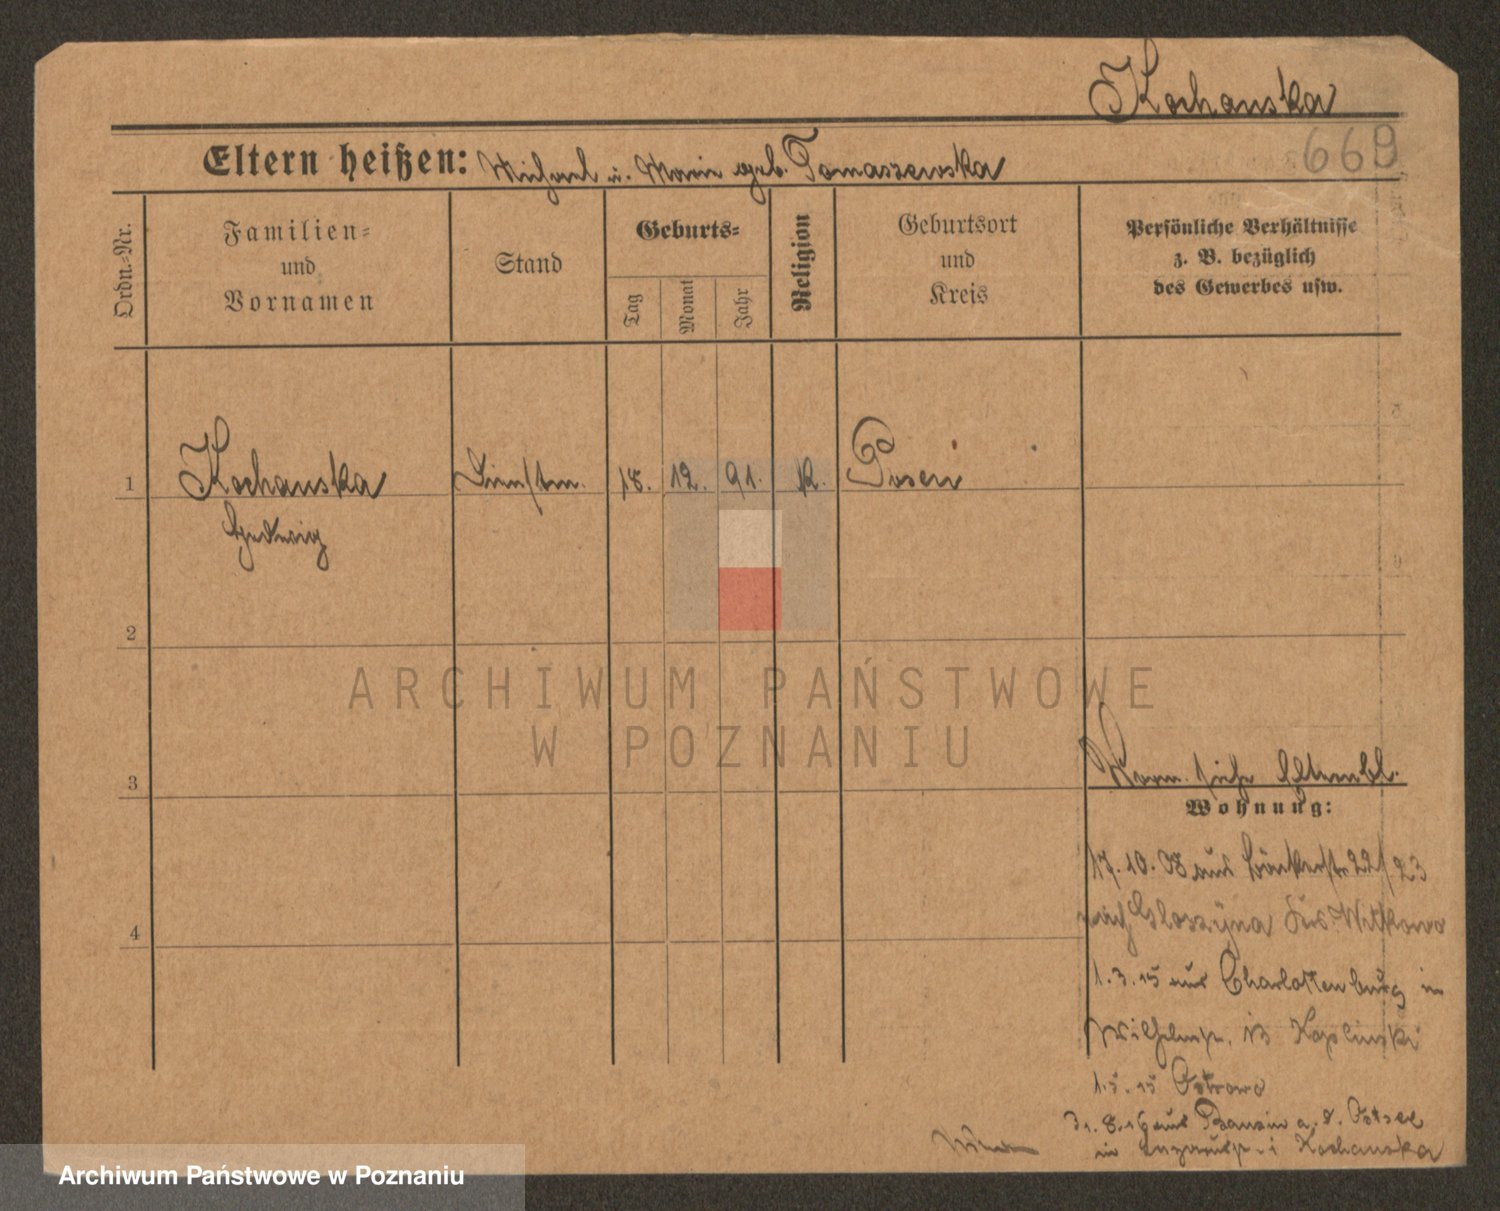 Kochanska
669
Eltern heißen: Michael u. Marie geb. Tomaszewska
Ordn.-Nr.
Familien-
und
Vornamen
Stand
Geburts-
Tag
Monat
Jahr
Religion
Geburtsort
und
Kreis
Persönliche Verhältnisse
z. B. bezüglich
des Gewerbes usw.
1
Kochanska
Hedwig
Dienstm.
18.
12.
91.
K.
Posen
2
3
4
siehe Elternbl.
Wohnung:
17.10.08 aus Bäckerstr 22/23
nach Witkowo
1.3.15 aus Charlottenburg in
1.5.15 Ostrowo
31.8.16 aus Bansin a. d. Ostsee
in Kochanska
ARCHIWUM PAŃSTWOWE
W POZNANIU
Archiwum Państwowe w Poznaniu